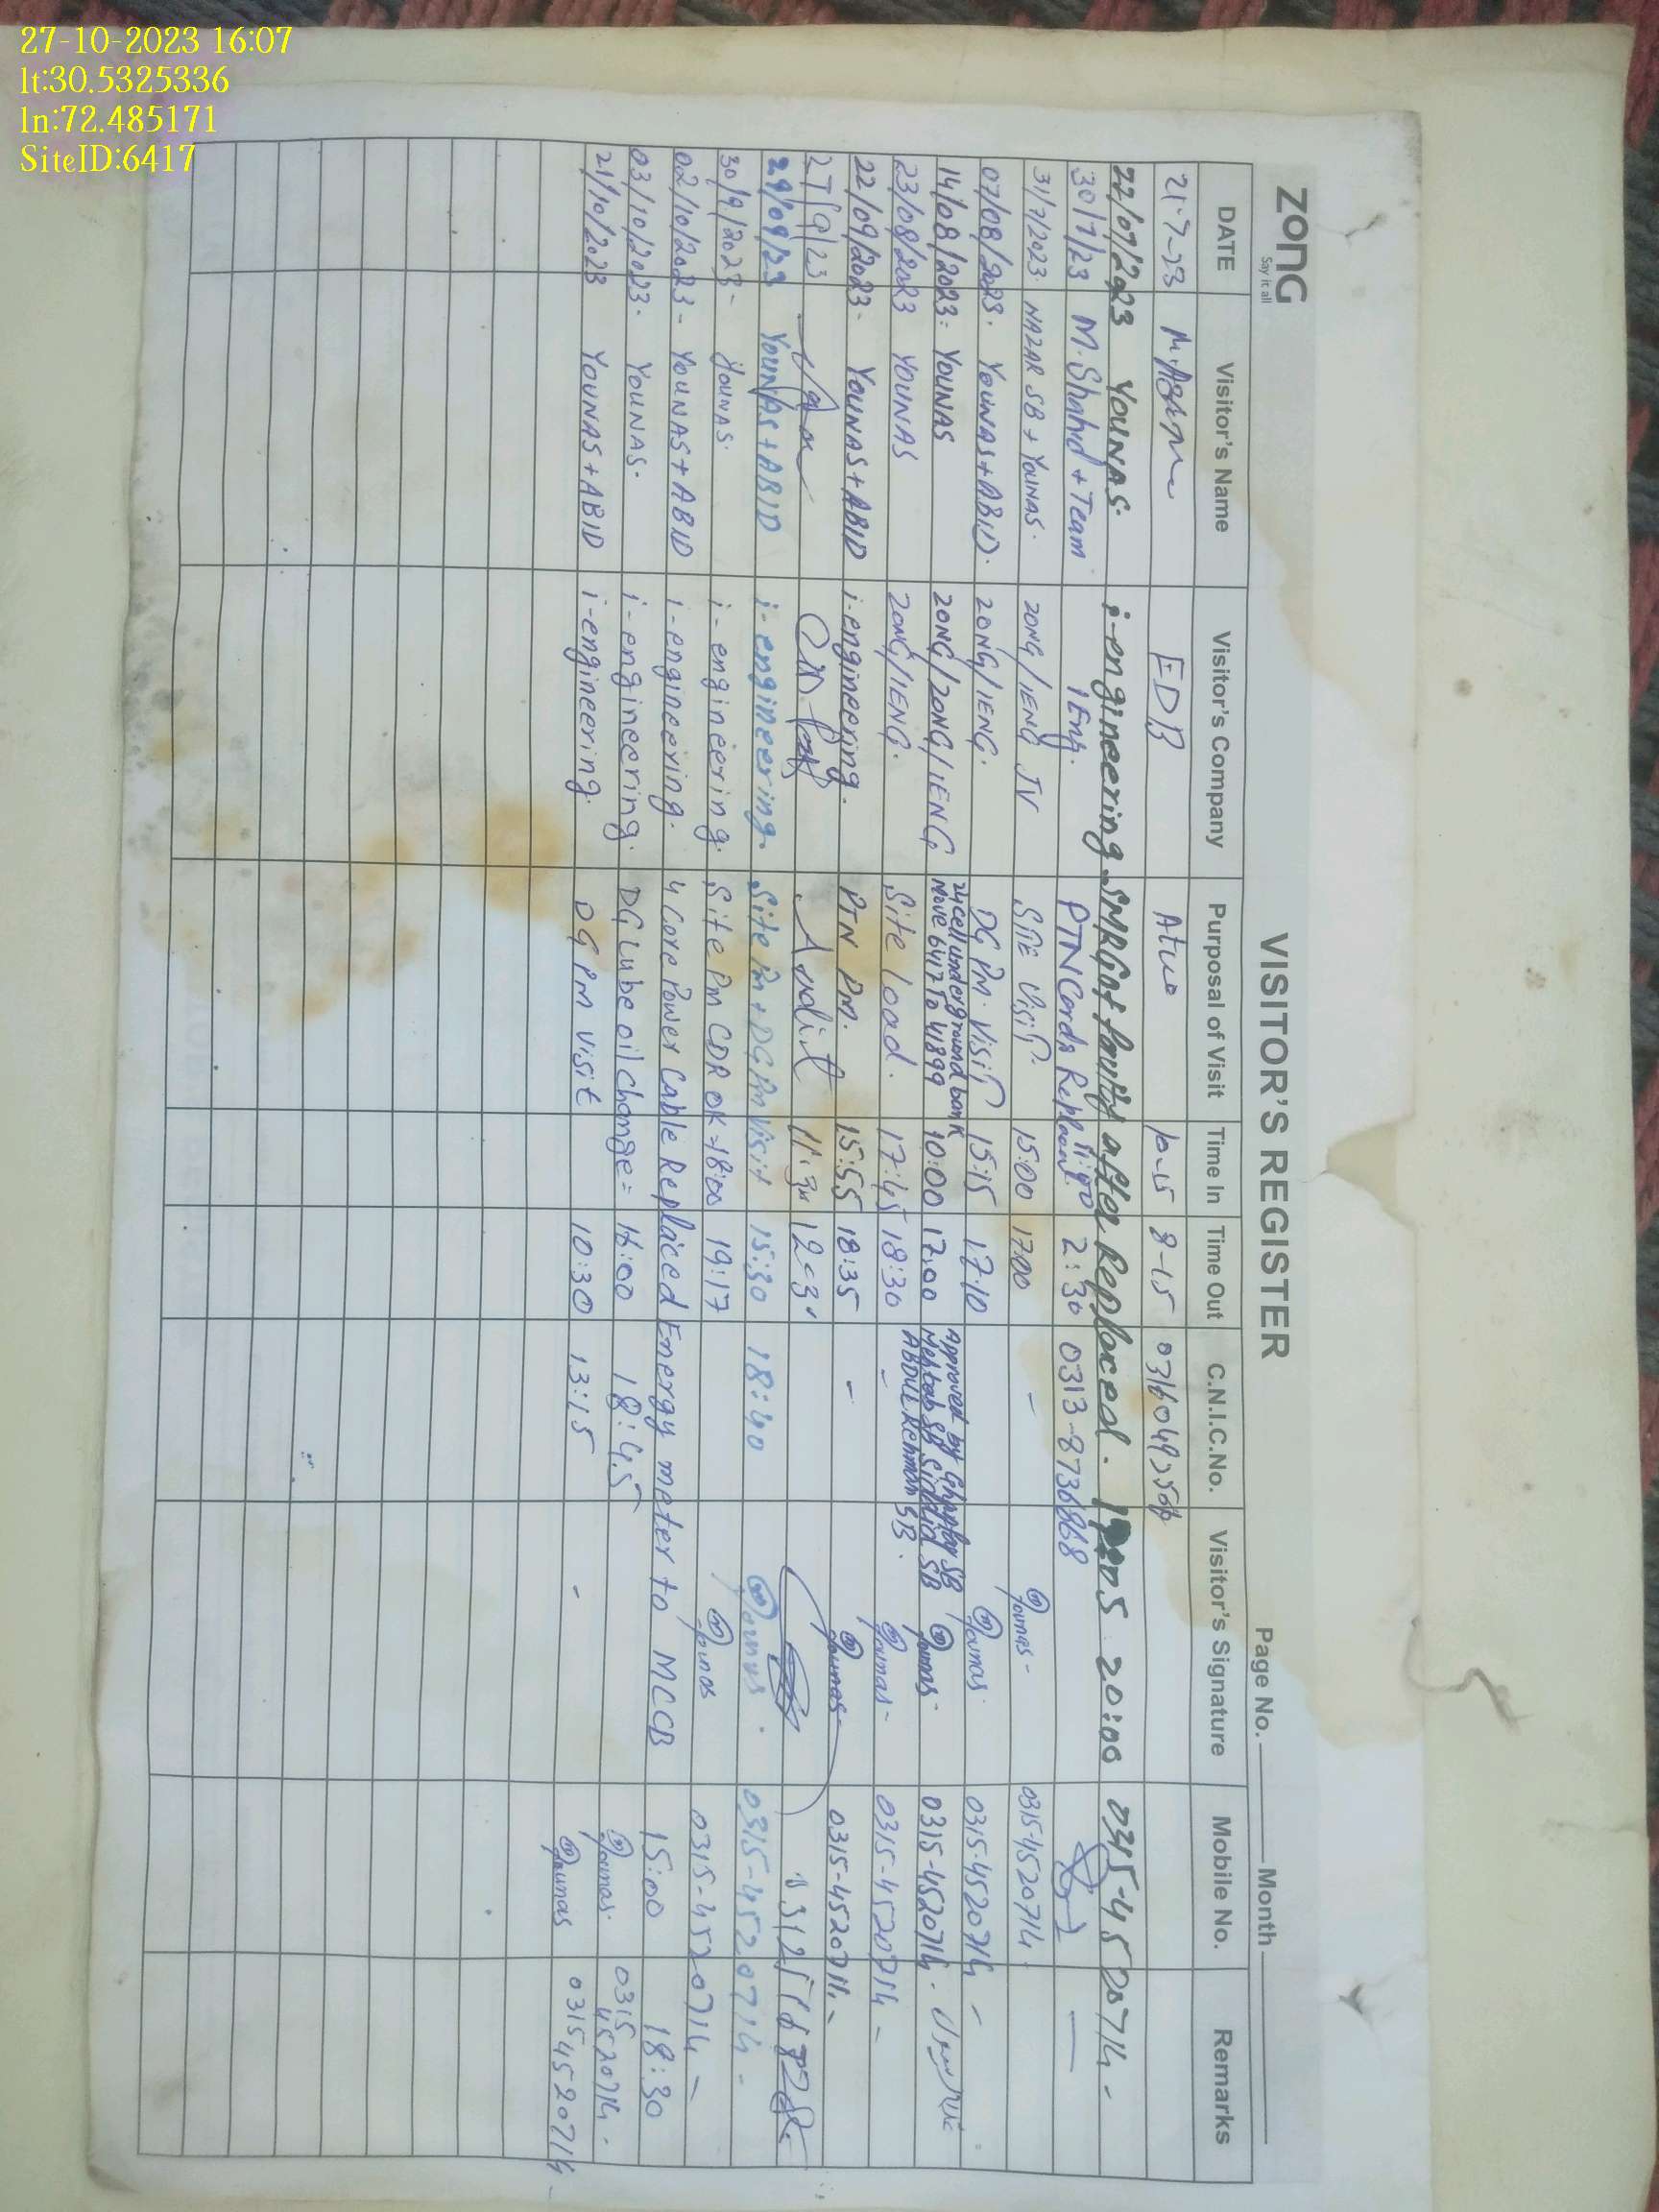 27-10-2023 16:07
lt:30.5325336
ln:72.485171
SiteID:6417
zong
Say it all
VISITOR'S REGISTER
Page No. Month
DATE Visitor's Name Visitor's Company Purposal of Visit Time In Time Out C.N.I.C.No. Visitor's Signature Mobile No. Remarks
21-7-23 EDB 10-15 8-15
22/07/2023 YOUNAS. i-engineering. after Replaced. 20:00 0315-4520714-
30/7/23 M. Shahid + Team IEng. PTN Cards 2:30 0313-8736868
31/7/2023. NAZAR SB + YOUNAS. ZONG/IENG JV SITE VISIT. 15:00 17:00 - Younas- 0315-4520714
07/08/2023. YOUNAS+ABID. ZONG/IENG. DG PM. VISIT 15:15 17:10 Younas. 0315-4520714 -
14/08/2023: YOUNAS ZONG/ZONG/IENG 24 cell underground bank Move 6417 To 41899 10:00 17:00 Approved by SB Mehtab SB SB ABDUL Rehman SB. Younas- 0315-4520714.
23/08/2023 YOUNAS ZONG/IENG. Site load. 17:45 18:30 - Younas- 0315-4520714 -
22/09/2023- YOUNAS+ABID i-engineering. PTN PM. 15:55 18:35 - Younas- 0315-4520714-
27/9/23 Audit
29/09/23 YOUNAS+ABID i-engineering. Site Pm + DG Pm Visit 15:30 18:40 Younas. 0315-4520714-
30/9/2023- YOUNAS. i-engineering. Site Pm CDR OK 18:00 19:17 Younas 0315-4520714 -
02/10/2023- YOUNAS+ABID i-engineering. 4 Core Power Cable Replaced Energy meter to MCCB 15:00 18:30
03/10/2023. YOUNAS. i-engineering. DG Lube oil change= 16:00 18:45 Younas. 0315 4520714-
21/10/2023 YOUNAS+ABID i-engineering. DG PM visit 10:30 13:15 - Younas 0315 4520714